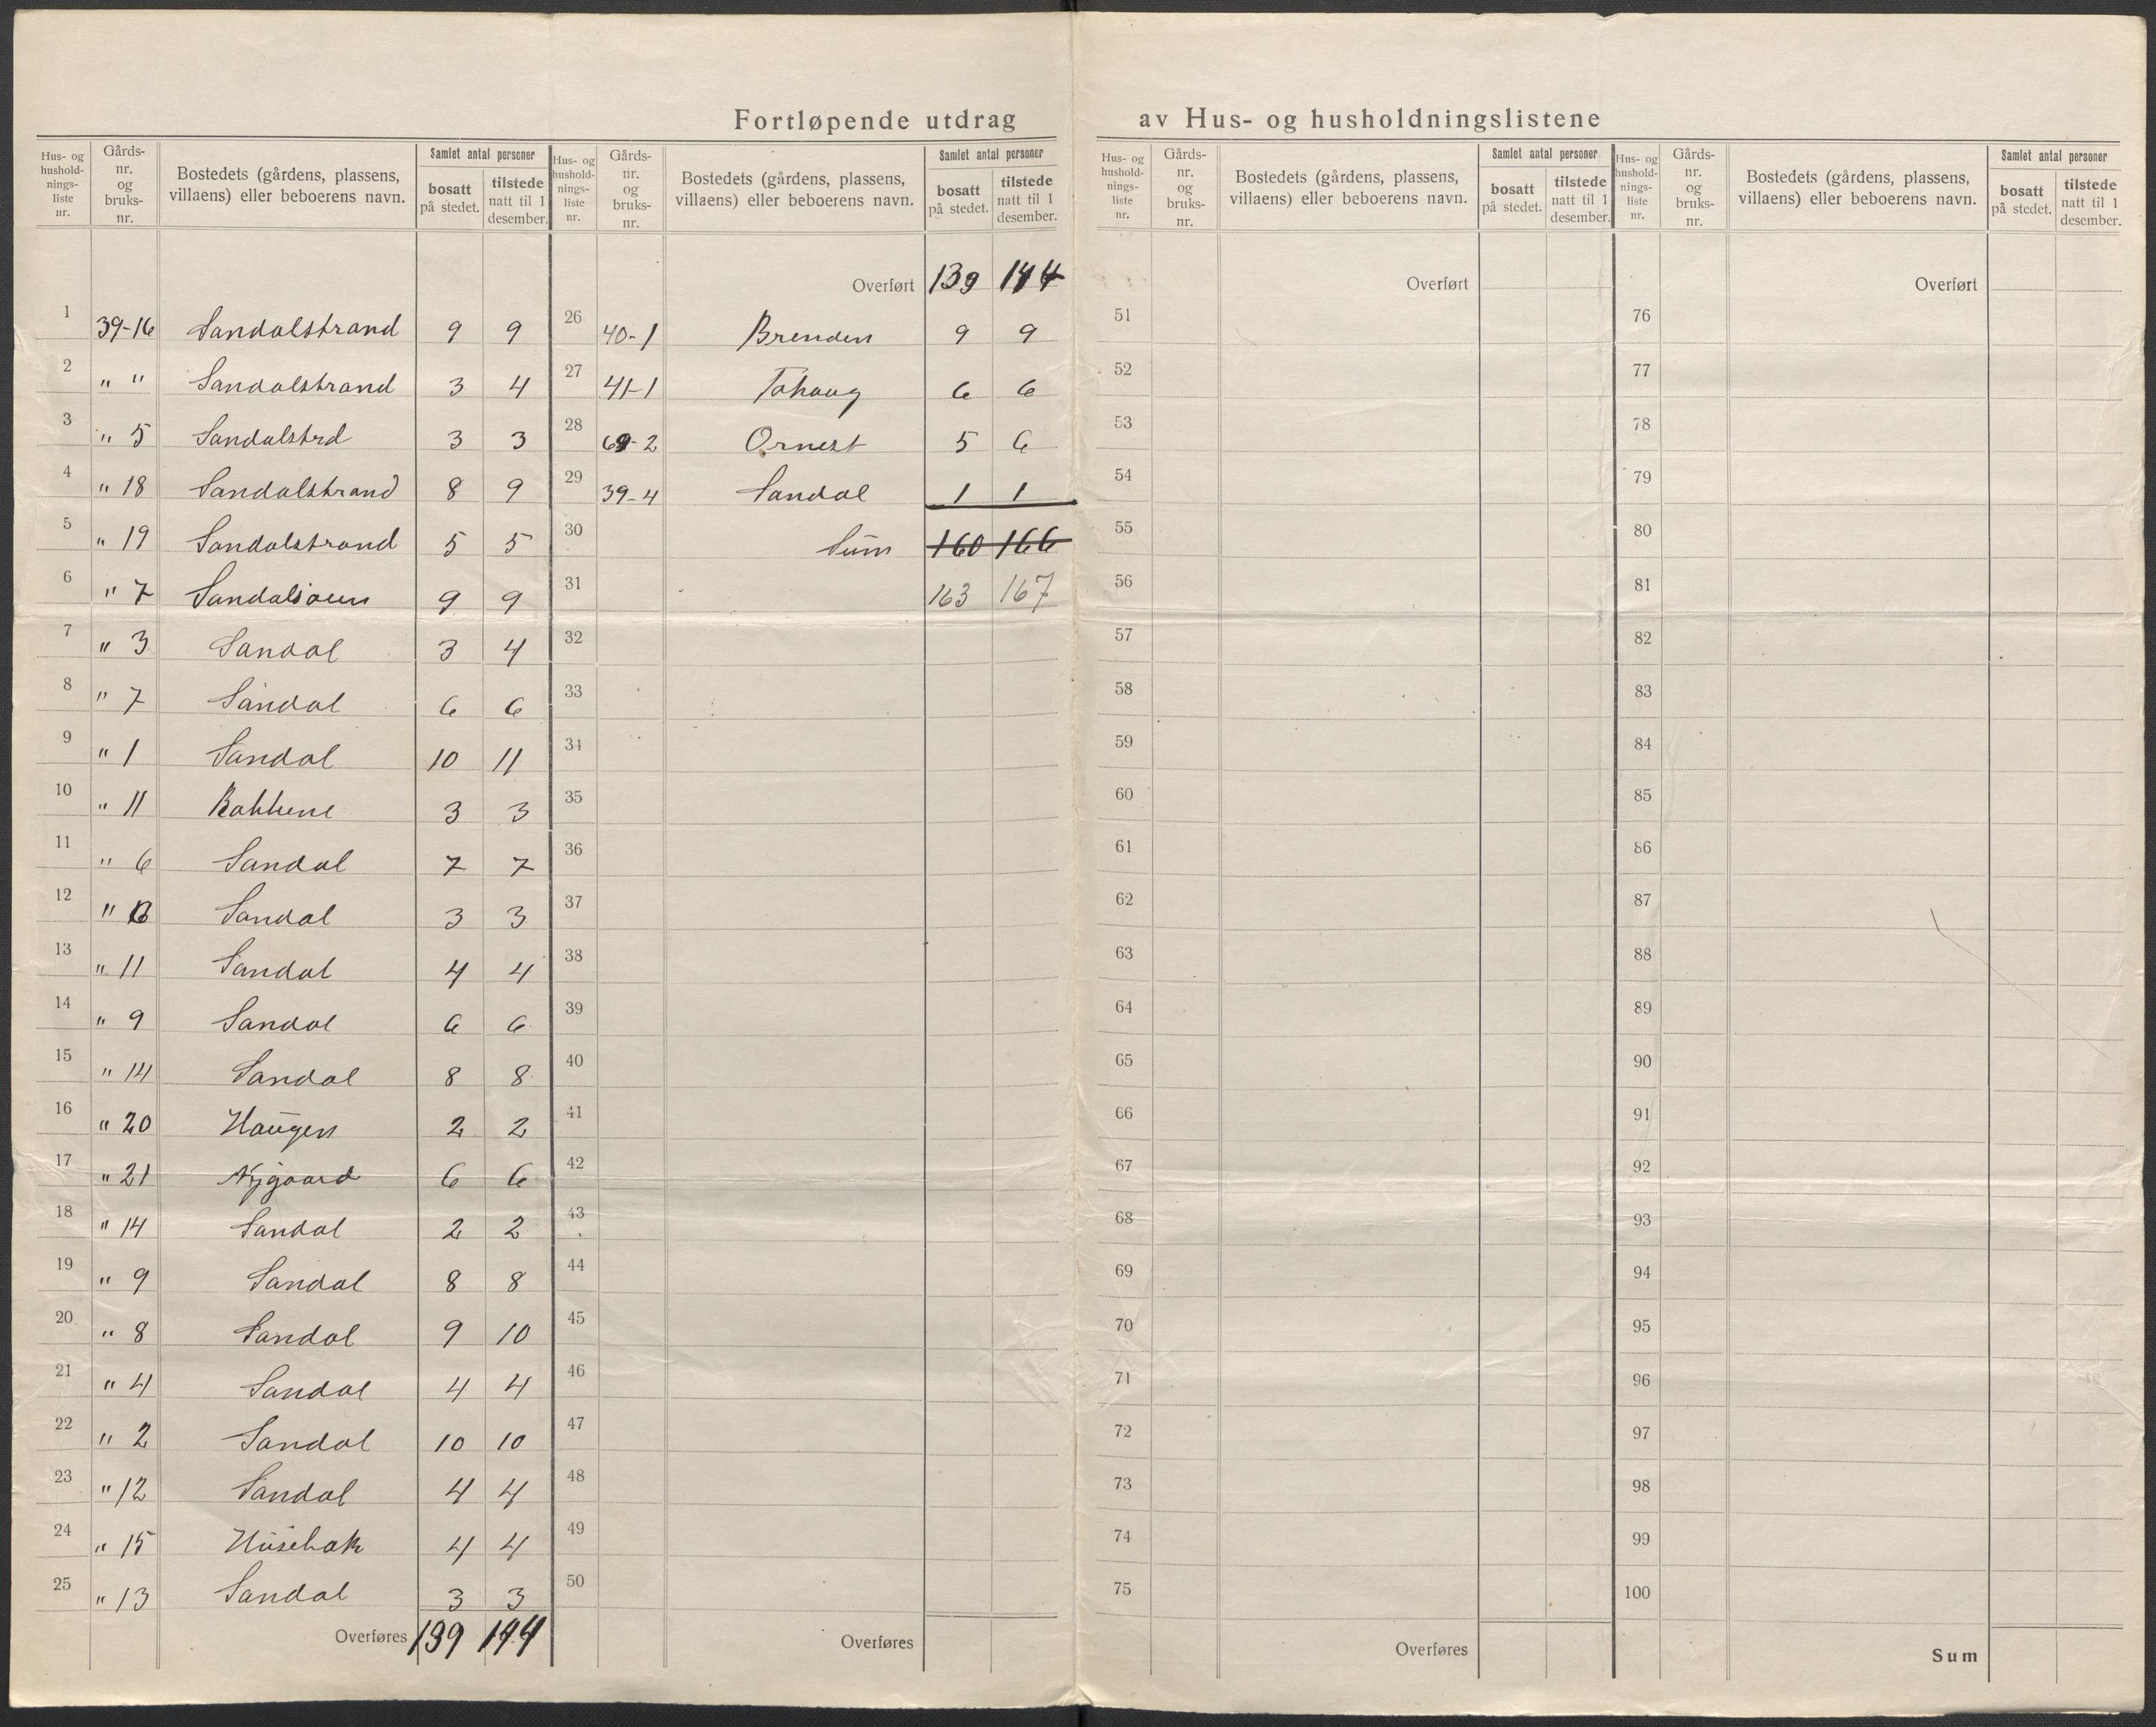 Fortløpende utdrag av Hus- og husholdningslistene
Hus- og husholdningsliste nr. Gårds-nr. og bruks-nr. Bostedets (gårdens, plassens, villaens) eller beboerens navn. Samlet antal personer bosatt på stedet. tilstede natt til 1 desember.
1 39-16 Sandalstrand 9 9
2 " " Sandalstrand 3 4
3 " 5 Sandalstrd 3 3
4 " 18 Sandalstrand 8 9
5 " 19 Sandalstrand 5 5
6 " 7 9 9
7 " 3 Sandal 3 4
8 " 7 Sandal 6 6
9 " 1 Sandal 10 11
10 " 11 Bakkene 3 3
11 " 6 Sandal 7 7
12 " Sandal 3 3
13 " 11 Sandal 4 4
14 " 9 Sandal 6 6
15 " 14 Sandal 8 8
16 " 20 Haugen 2 2
17 " 21 Nygaard 6 6
18 " 14 Sandal 2 2
19 " 9 Sandal 8 8
20 " 8 Sandal 9 10
21 " 4 Sandal 4 4
22 " 2 Sandal 10 10
23 " 12 Sandal 4 4
24 " 15 Husebak 4 4
25 " 13 Sandal 3 3
Overføres 139 144
Hus- og husholdnings-liste nr. Gårds-nr. og bruks-nr. Bostedets (gårdens, plassens, villaens) eller beboerens navn. Samlet antal personer bosatt på stedet. tilstede natt til 1 desember.
Overført 139 144
26 40-1 Brenden 9 9
27 41-1 6 6
28 69-2 Ornest 5 6
29 39-4 Sandal 1 1
30 Sum 160 166
31 163 167
32
33
34
35
36
37
38
39
40
41
42
43
44
45
46
47
48
49
50
Overføres
Hus- og husholdnings-liste nr. Gårds-nr. og bruks-nr. Bostedets (gårdens, plassens, villaens) eller beboerens navn. Samlet antal personer bosatt på stedet. tilstede natt til 1 desember.
Overført
51
52
53
54
55
56
57
58
59
60
61
62
63
64
65
66
67
68
69
70
71
72
73
74
75
Overføres
Hus- og husholdnings-liste nr. Gårds-nr. og bruks-nr. Bostedets (gårdens, plassens, villaens) eller beboerens navn. Samlet antal personer bosatt på stedet. tilstede natt til 1 desember.
Overført
76
77
78
79
80
81
82
83
84
85
86
87
88
89
90
91
92
93
94
95
96
97
98
99
100
Sum